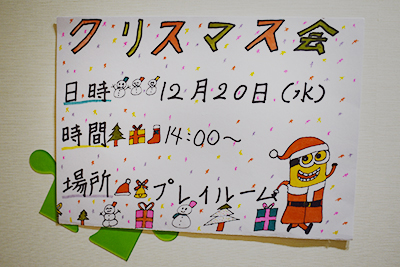 クリスマス会
日時 12月20日(水)
時間 14:00〜
場所 プレイルーム